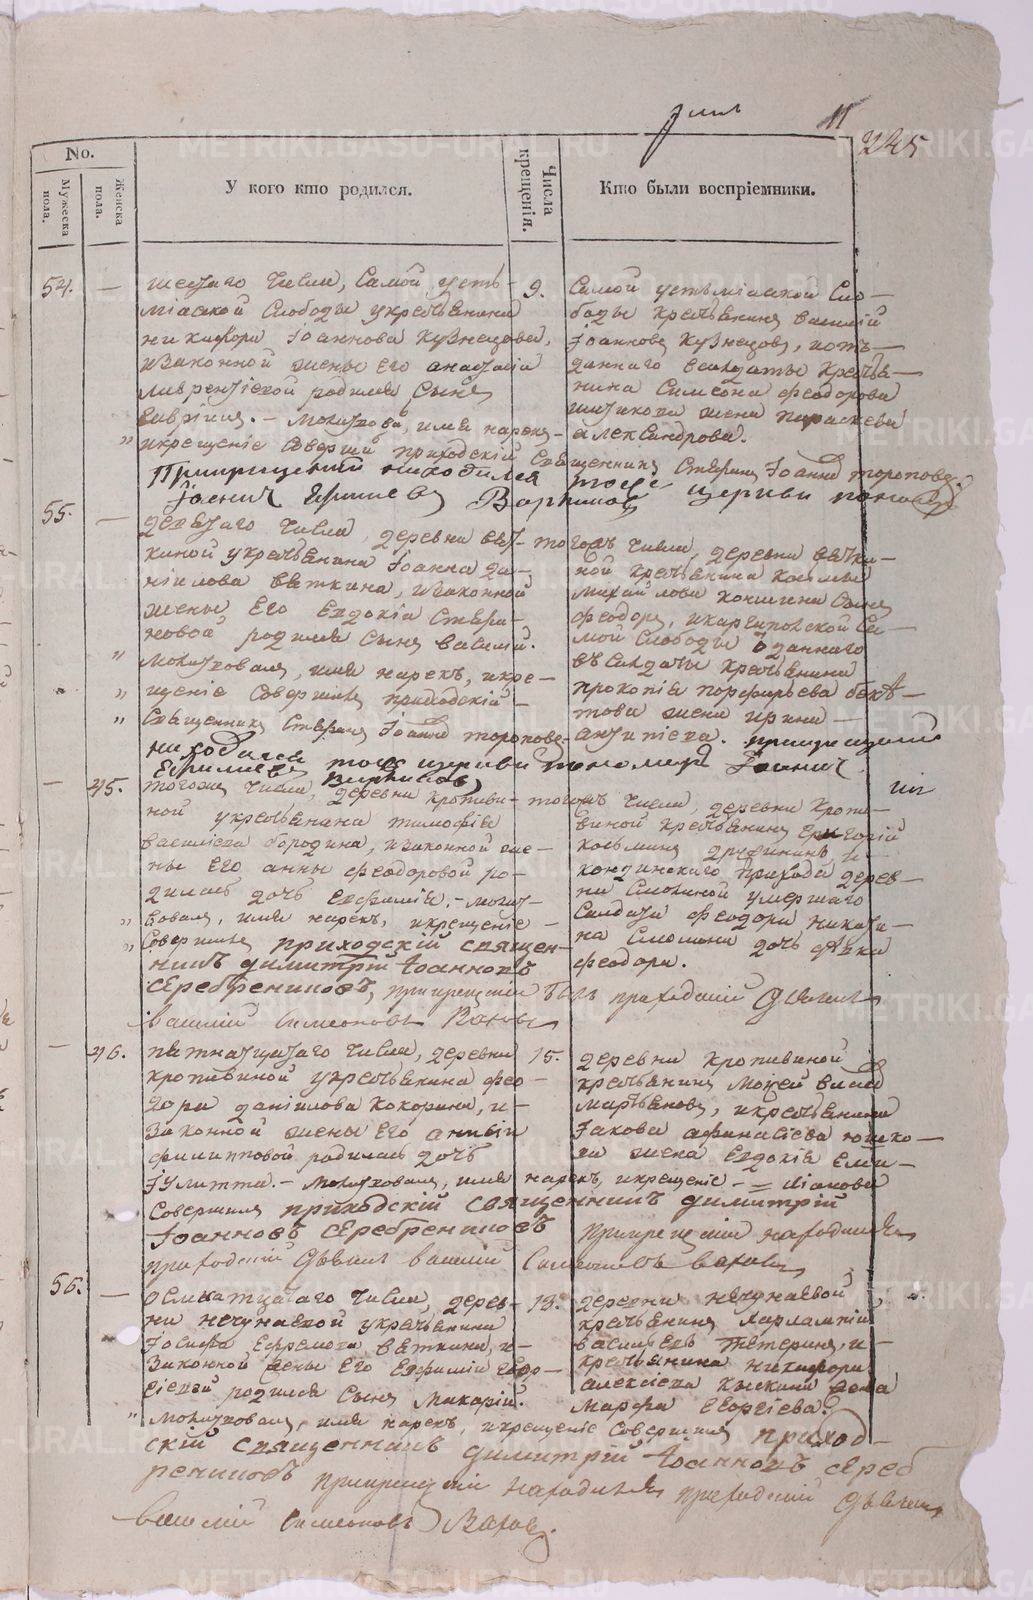 Июль
11
245
No.
Мужеска пола.
Женска пола.
У кого кто родился.
Числа крещенія.
Кто были воспріемники.
54. — шестаго числа, самой усть-
міаской слободы у крестьянина
никифора Іоаннова Кузнецова,
и законной жены его анастасіи
лаврентіевой родился сынъ
гавріилъ. – молитвовалъ, имя нарекъ,
и крещеніе соверши приходскій священникъ Стефанъ Іоанновъ тороповъ.
При крещеніи находился тоей церкви пономарь
Іоанич Ефимьевъ
9. самой устьміаской сло-
боды крестьянинъ василій
Іоанновъ Кузнецовъ, и от-
даннаго в солдаты крестья-
нина Симеона феодорова
жена параскева
александрова.
55. — девятаго числа, деревни вят-
киной у крестьянина Іоанна да-
ніилова вяткина, и законной
жены его Евдокіи Стефа-
новой родился сынъ василій.
молитвовалъ, имя нарекъ, и кре-
щеніе совершилъ приходскій
Священникъ Стефанъ Іоанновъ тороповъ.
тогожъ числа, деревни вятки-
ной крестьянина косьмы
михайлова сынъ
феодоръ, и каргапольской сло-
мой слободы отданнаго
въ солдаты крестьянина
прокопія порфирьева
жена ирина
антипіева. при крещеніи
находился тоей церкви пономарь Іоанич
Ефимьевъ
— 45. тогожъ числа, деревни кропиви-
ной у крестьянина тимофея
василіева бородина, и законной же-
ны его анны феодоровой ро-
дилась дочь евфимія. – молит-
вовалъ, имя нарекъ, и крещеніе
совершилъ приходскій священ-
никъ димитрій Іоанновъ
Серебрениковъ, при крещеніи былъ приходскій дьячекъ
василій Симеоновъ
тогожъ числа, деревни кропи-
виной крестьянинъ григорій
косьминъ и
кондинскаго прихода дерев-
ни Смолиной умершаго
Солдата феодора никити-
на Смолина дочь дѣвка
феодора.
— 46. пятнатцатаго числа, деревни
кропивиной у крестьянина фео-
дора даніилова кокорина, и
законной жены его
филипповой родилась дочь
Іулитта. – молитвовалъ, имя нарекъ, и крещеніе
совершилъ приходскій священникъ димитрій
Іоанновъ Серебрениковъ при крещеніи находился
приходскій дьячекъ василій Симеоновъ
15. деревни кропивиной
крестьянинъ Моисей
мартьяновъ, и крестьянина
Іакова афанасіева юшко-
ва жена Евдокія Еми-
ліанова
56. — осмнатцатаго числа, дерев-
ни нечунаевой у крестьянина
Іосифа Ефремова вяткина, и
законной жены его Евфиміи
родился сынъ макарій.
молитвовалъ, имя нарекъ, и крещеніе совершилъ приход-
скій священникъ димитрій Іоанновъ Сереб
рениковъ при крещеніи находился приходскій дьячекъ
василій Симеоновъ
18. деревни нечунаевой
крестьянинъ харлампій
васильевъ тетеринъ, и
крестьянина никифора
алексіева жена
марфа георгіева.